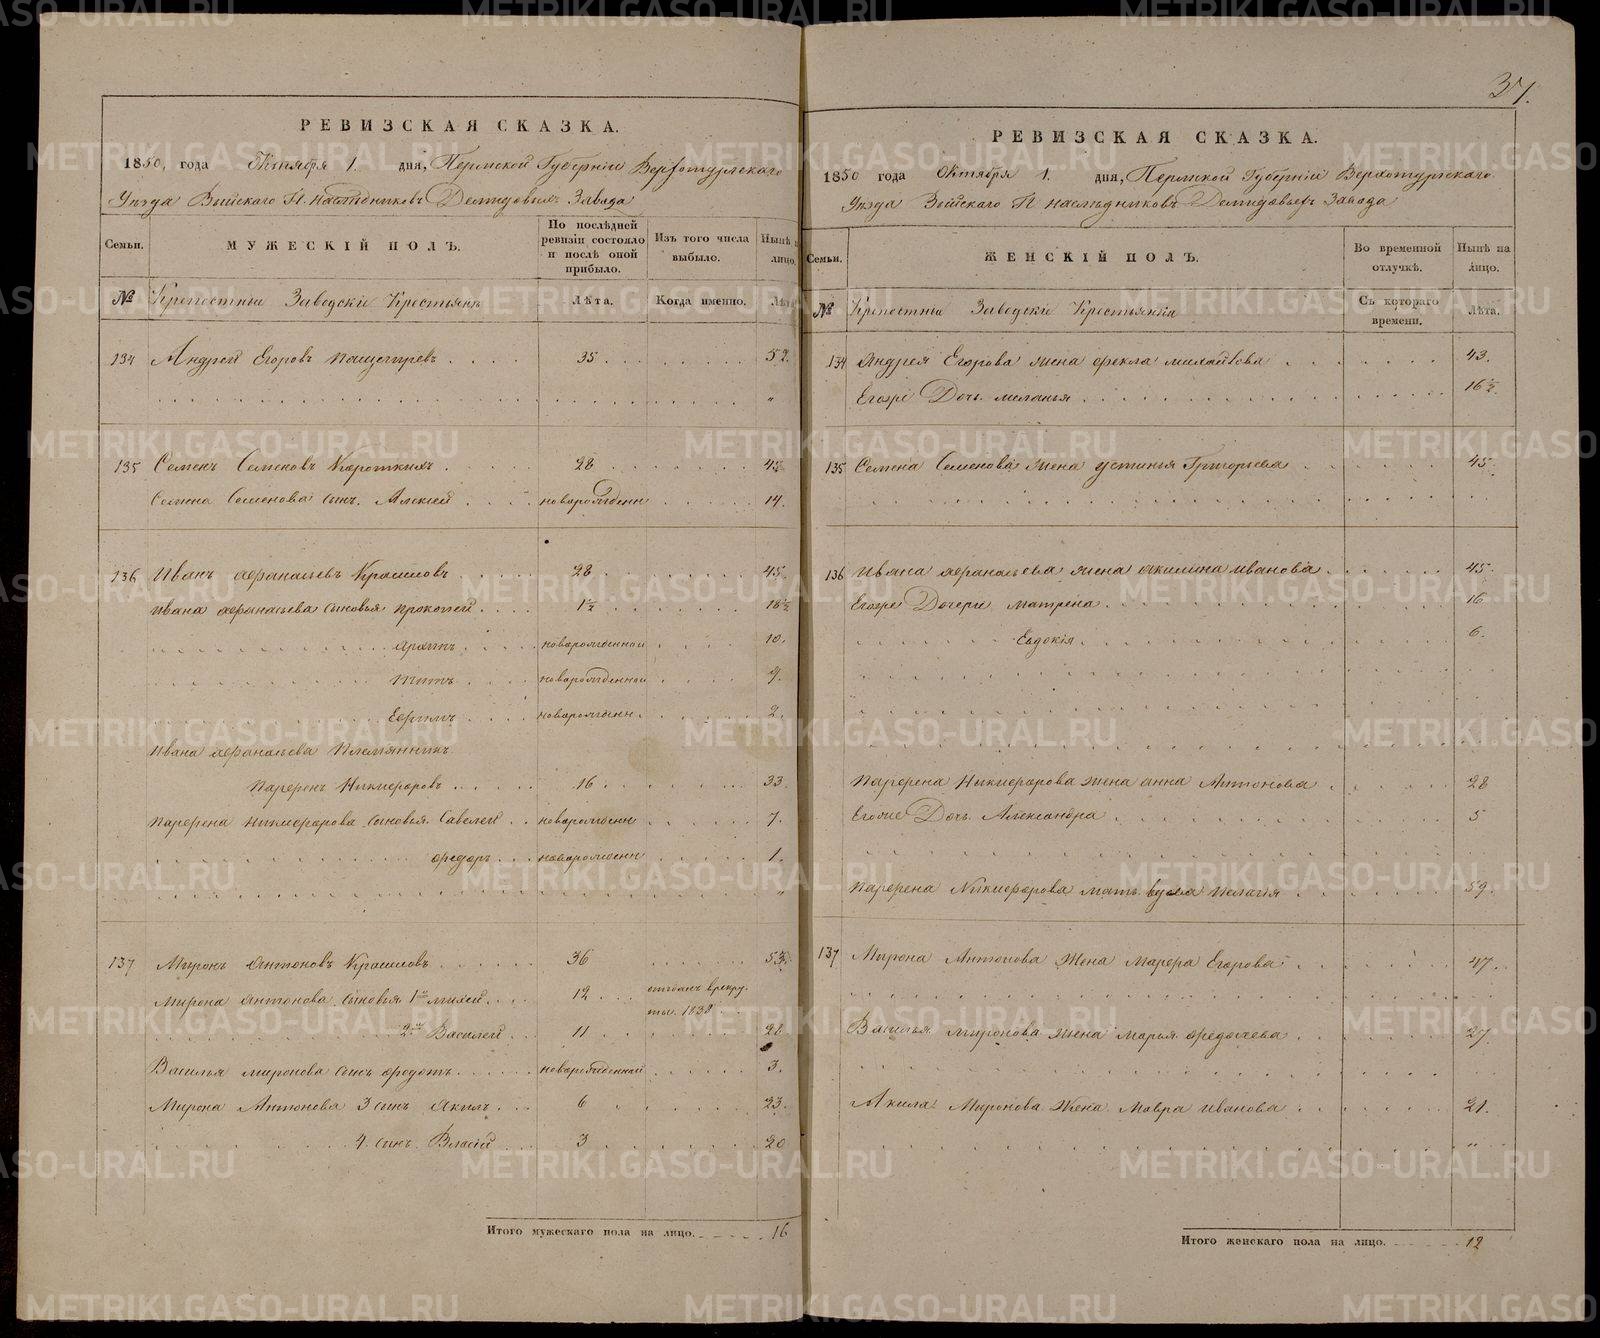 РЕВИЗСКАЯ СКАЗКА.
1850, года Октября 1. дня, Пермской Губерніи Верхотурскаго
Уезда Выйскаго Н. наследниковъ Демидовыхъ Завода
Семьи.
МУЖЕСКІЙ ПОЛЪ.
По послѣдней ревизіи состояло и послѣ оной прибыло.
Изъ того числа выбыло.
Нынѣ на лицо.
№
Крепостныи Заводскіе Крестьянъ
Лѣта.
Когда именно.
Лѣта
134 Андрей Егоровъ 35 52.
135 Семенъ Семеновъ Короткихъ 28 45
Семена Семенова сынъ Алексей новорожденн 14.
136 Иванъ афанасьевъ Крашловъ 28 45
Ивана афанасьева сыновья прокопей 1½ 18½
архипъ новорожденной 10.
титъ новорожденной
Ефимъ новорожденн. 2.
Ивана афанасьева племянникъ
парфенъ Никифоровъ 16 33.
парфена никифорова сыновья Савелей новорожденн 7.
федоръ новорожденн 1.
137 Миронъ антоновъ Крашловъ 36 53.
Мирона антонова сыновья 1й михей 12 отданъ врекруты. 1838
2й Василей 11 28
Василья миронова сынъ федотъ новорожденной 3.
Мирона Антонова 3 сынъ Якилъ 6 23.
4. сынъ Власій 3 20
Итого мужескаго пола на лицо. 16
37.
РЕВИЗСКАЯ СКАЗКА.
1850 года Октября 1. дня, Пермской Губерніи Верхотурскаго
Уезда Выйскаго Н наследниковъ Демидовыхъ Завода
Семьи.
ЖЕНСКІЙ ПОЛЪ.
Во временной отлучкѣ.
Нынѣ на лицо.
№
Крепостныи Заводскіе Крестьянки
Съ котораго времени.
Лѣта.
134 Андрея Егорова жена фекла михайлова 43.
Егоже Дочь меланья 16½
135 Семена Семенова жена устинья Григорьева 45
136 Ивана афанасьева жена акилина иванова 45
Егоже Дочери матрена 16
Евдокія 6.
парфена Никифорова жена анна Антонова 28
Егоже Дочь Александра 5
парфена Никифорова мать вдова пелагія 59.
137 Мирона Антонова жена марфа Егорова 47
Василья миронова жена марья федосеева 27
Акила Миронова жена мавра иванова 21.
Итого женскаго пола на лицо. 12
METRIKI.GASO-URAL.RU